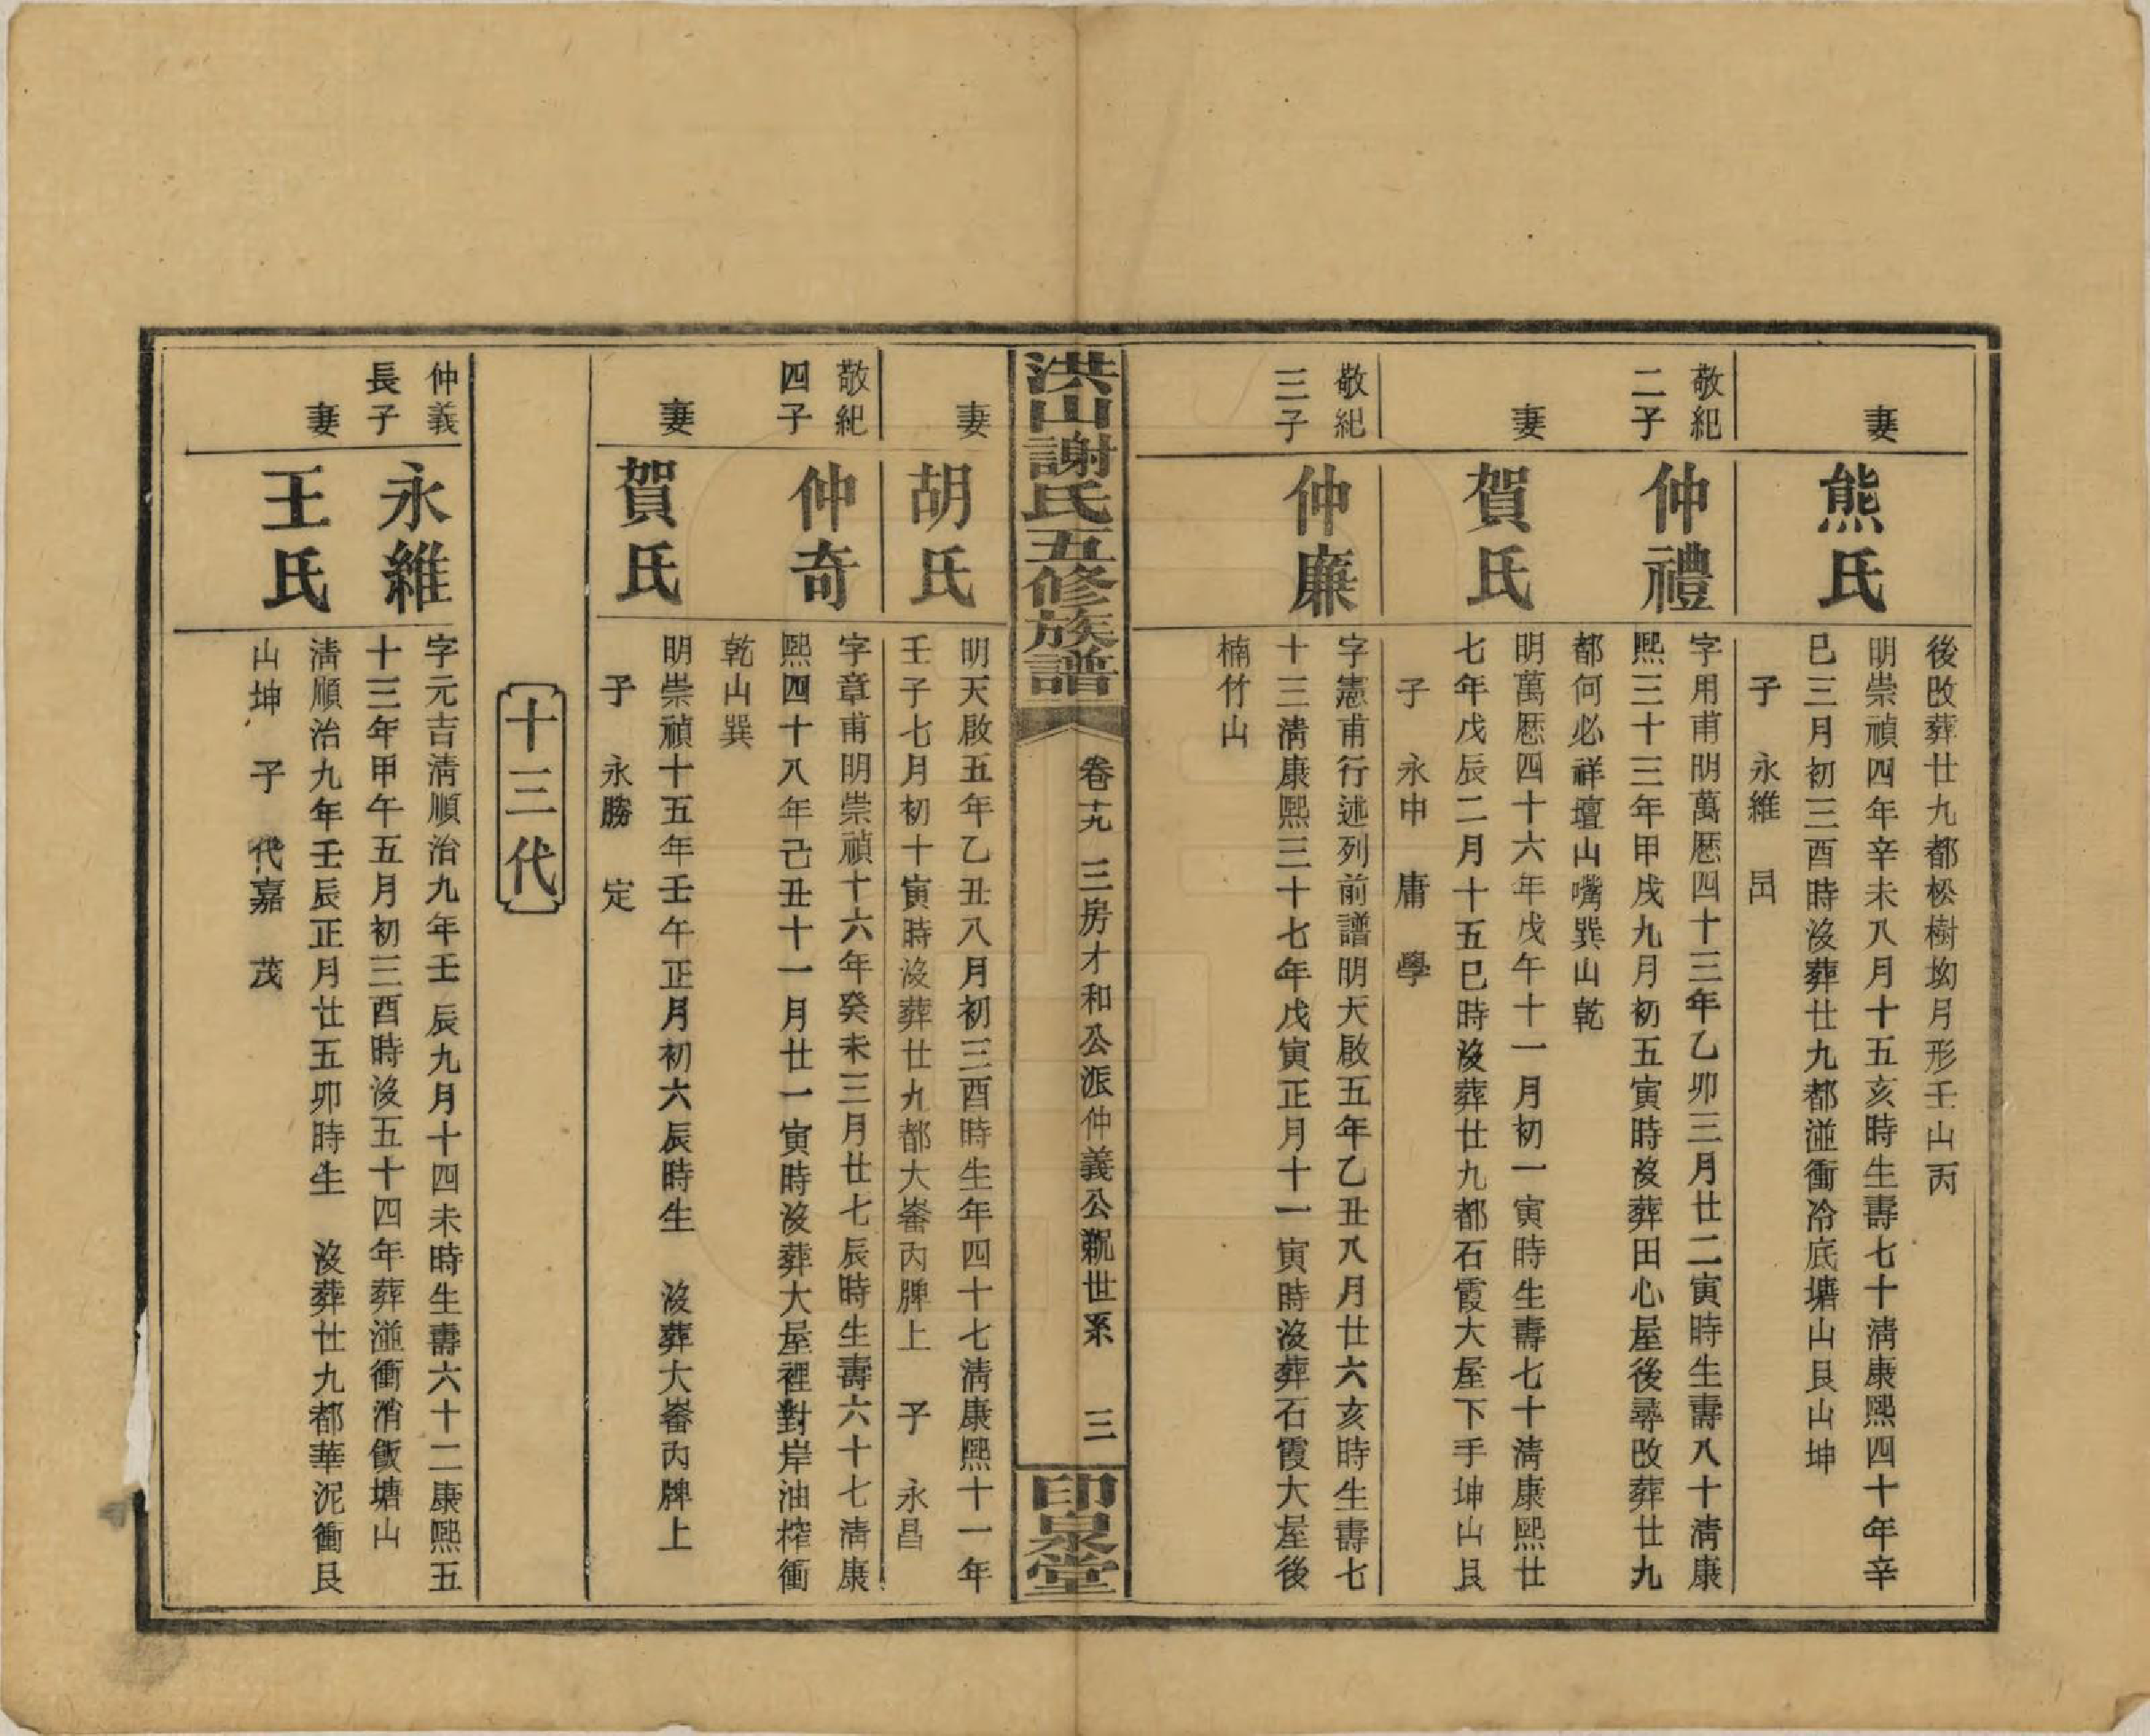 後改葬廿九都松樹坳月形壬山丙
妻
熊氏
明崇禎四年辛未八月十五亥時生壽七十淸康熙四十年辛
巳三月初三酉時沒葬廿九都湴衝冷底塘山艮山坤
子 永維 固
敬紀
二子
仲禮
字用甫明萬厯四十三年乙卯三月廿二寅時生壽八十淸康
熙三十三年甲戌九月初五寅時沒葬田心屋後尋改葬廿九
都何必祥壇山嘴巽山乾
妻
賀氏
明萬厯四十六年戊午十一月初一寅時生壽七十淸康熙廿
七年戊辰二月十五巳時沒葬廿九都石霞大屋下手坤山艮
子 永申 庸 學
敬紀
三子
仲廉
字憲甫行述列前譜明天啟五年乙丑八月廿六亥時生壽七
十三淸康熙三十七年戊寅正月十一寅時沒葬石霞大屋後
楠竹山
洪山謝氏五修族譜
卷十九 三房才和公派仲義公覶世系 三
印泉堂
妻
胡氏
明天啟五年乙丑八月初三酉時生年四十七淸康熙十一年
壬子七月初十寅時沒葬廿九都大崙內牌上 子 永昌
敬紀
四子
仲奇
字章甫明崇禎十六年癸未三月廿七辰時生壽六十七淸康
熙四十八年己丑十一月廿一寅時沒葬大屋裡對岸油榨衝
乾山巽
妻
賀氏
明崇禎十五年壬午正月初六辰時生 沒葬大崙內牌上
子 永勝 定
十三代
仲義
長子
永維
字元吉淸順治九年壬辰九月十四未時生壽六十二康熙五
十三年甲午五月初三酉時沒五十四年葬湴衝消飯塘山
妻
王氏
淸順治九年壬辰正月廿五卯時生 沒葬廿九都華泥衝艮
山坤 子 代嘉 茂